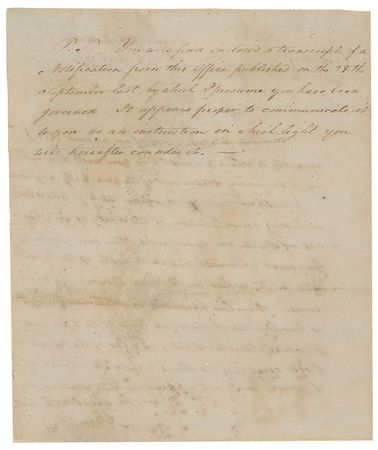 P.S. You will find inclosed a transcript of a
Notification from this Office published on the 18th
September last, by which I presume you have been
governed. It appears proper to communicate it
to you as an instruction in which light you
will hereafter consider it. —